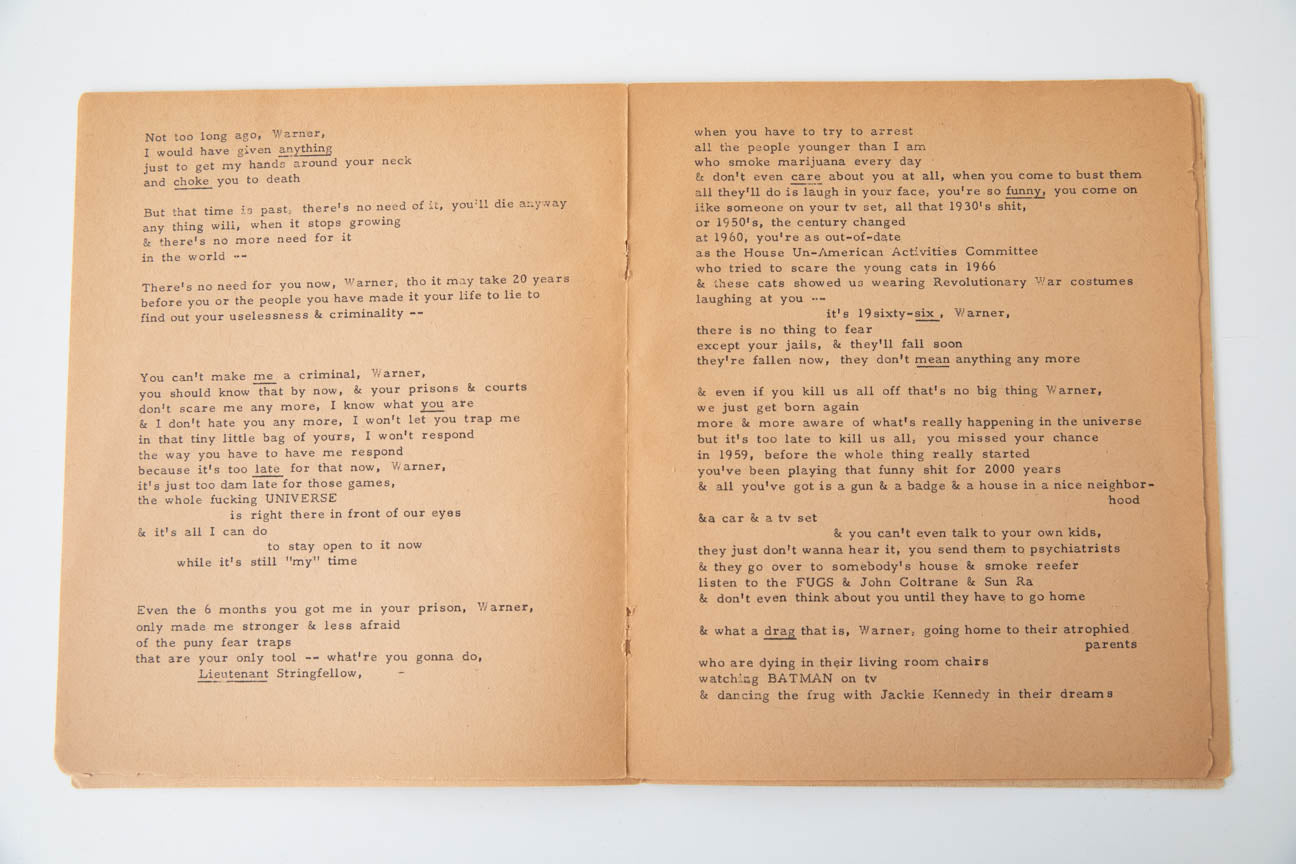 Not too long ago, Warner,
I would have given anything
just to get my hands around your neck
and choke you to death
But that time is past, there's no need of it, you'll die anyway
any thing will, when it stops growing
& there's no more need for it
in the world --
There's no need for you now, Warner, tho it may take 20 years
before you or the people you have made it your life to lie to
find out your uselessness & criminality --
You can't make me a criminal, Warner,
you should know that by now, & your prisons & courts
don't scare me any more, I know what you are
& I don't hate you any more, I won't let you trap me
in that tiny little bag of yours, I won't respond
the way you have to have me respond
because it's too late for that now, Warner,
it's just too dam late for those games,
the whole fucking UNIVERSE
is right there in front of our eyes
& it's all I can do
to stay open to it now
while it's still "my" time
Even the 6 months you got me in your prison, Warner,
only made me stronger & less afraid
of the puny fear traps
that are your only tool -- what're you gonna do,
Lieutenant Stringfellow, -
when you have to try to arrest
all the people younger than I am
who smoke marijuana every day
& don't even care about you at all, when you come to bust them
all they'll do is laugh in your face, you're so funny, you come on
like someone on your tv set, all that 1930's shit,
or 1950's, the century changed
at 1960, you're as out-of-date
as the House Un-American Activities Committee
who tried to scare the young cats in 1966
& these cats showed us wearing Revolutionary War costumes
laughing at you --
it's 19sixty-six, Warner,
there is no thing to fear
except your jails, & they'll fall soon
they're fallen now, they don't mean anything any more
& even if you kill us all off that's no big thing Warner,
we just get born again
more & more aware of what's really happening in the universe
but it's too late to kill us all, you missed your chance
in 1959, before the whole thing really started
you've been playing that funny shit for 2000 years
& all you've got is a gun & a badge & a house in a nice neighbor-
hood
&a car & a tv set
& you can't even talk to your own kids,
they just don't wanna hear it, you send them to psychiatrists
& they go over to somebody's house & smoke reefer
listen to the FUGS & John Coltrane & Sun Ra
& don't even think about you until they have to go home
& what a drag that is, Warner, going home to their atrophied
parents
who are dying in their living room chairs
watching BATMAN on tv
& dancing the frug with Jackie Kennedy in their dreams